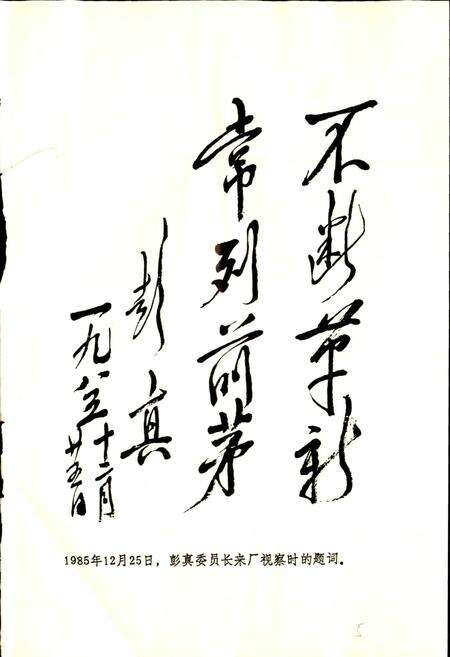 不断革新
常列前茅
彭真
一九八五十二月
廿五日
1985年12月25日，彭真委员长来厂视察时的题词。